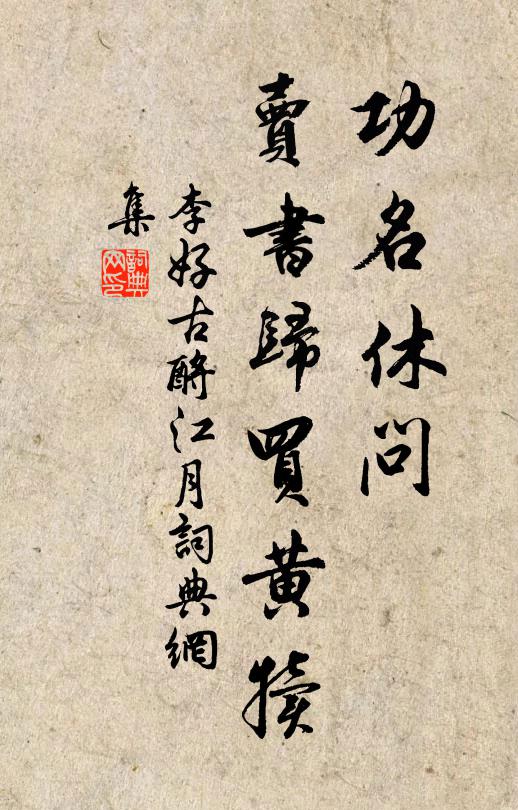 功名休問
賣書歸買黄犢
李好古酹江月詞典網
集
詞典
网印